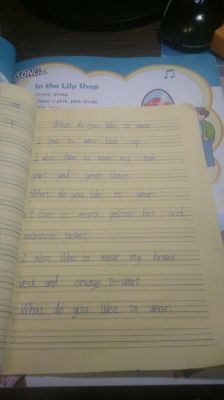 SONG
In the Lily Shop
Dress, dress,
a pink, pink dress,
What do you like to wear
I like to wear blue cap
I also like to wear my blue
skirt and green shoes
What do you like to wear
I like to wear yellow hat and
rainbow jacket
I also like to wear my brown
vest and orange T-shirt
What do you like to wear.